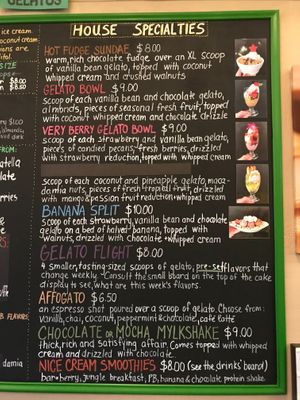 GELATOS
HOUSE SPECIALTIES
HOT FUDGE SUNDAE $8.00
warm, rich chocolate fudge over an XL scoop
of vanilla bean gelato, topped with coconut
whipped cream and crushed walnuts
GELATO BOWL $9.00
scoop of each vanilla bean and chocolate gelato,
almonds, pieces of seasonal fresh fruit, topped
with coconut whipped cream and chocolate drizzle
VERY BERRY GELATO BOWL $9.00
scoop of each strawberry and vanilla bean gelato,
pieces of candied pecans, fresh berries, drizzled
with strawberry reduction, topped with whipped cream
scoop of each coconut and pineapple gelato, maca-
damia nuts, pieces of fresh tropical fruit, drizzled
with mango & passion fruit reduction + whipped cream
BANANA SPLIT $10.00
scoop of each strawberry, vanilla bean and chocolate
gelato on a bed of halved banana, topped with
walnuts, drizzled with chocolate + whipped cream
GELATO FLIGHT $8.00
4 smaller, tasting-sized scoops of gelato, pre-set flavors that
change weekly. Consult the small board on the top of the cake
display to see what are this week's flavors.
AFFOGATO $6.50
an espresso shot poured over a scoop of gelato. Choose from:
vanilla, chai, coconut, peppermint &chocolate, café latte
CHOCOLATE OR MOCHA MYLKSHAKE $9.00
thick, rich and satisfying affair. Comes topped with whipped
cream and drizzled with chocolate.
NICE CREAM SMOOTHIES $8.00 (see the drinks' board!)
bar+berry, jungle breakfast, PB, banana & chocolate protein shake
ice cream
coconut cream
SIZE
$8.00
FROM:
damia